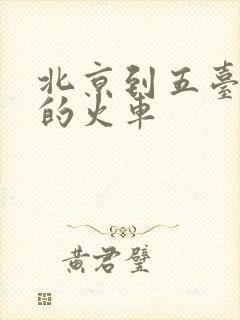 北京到五臺
的火車
黄君璧